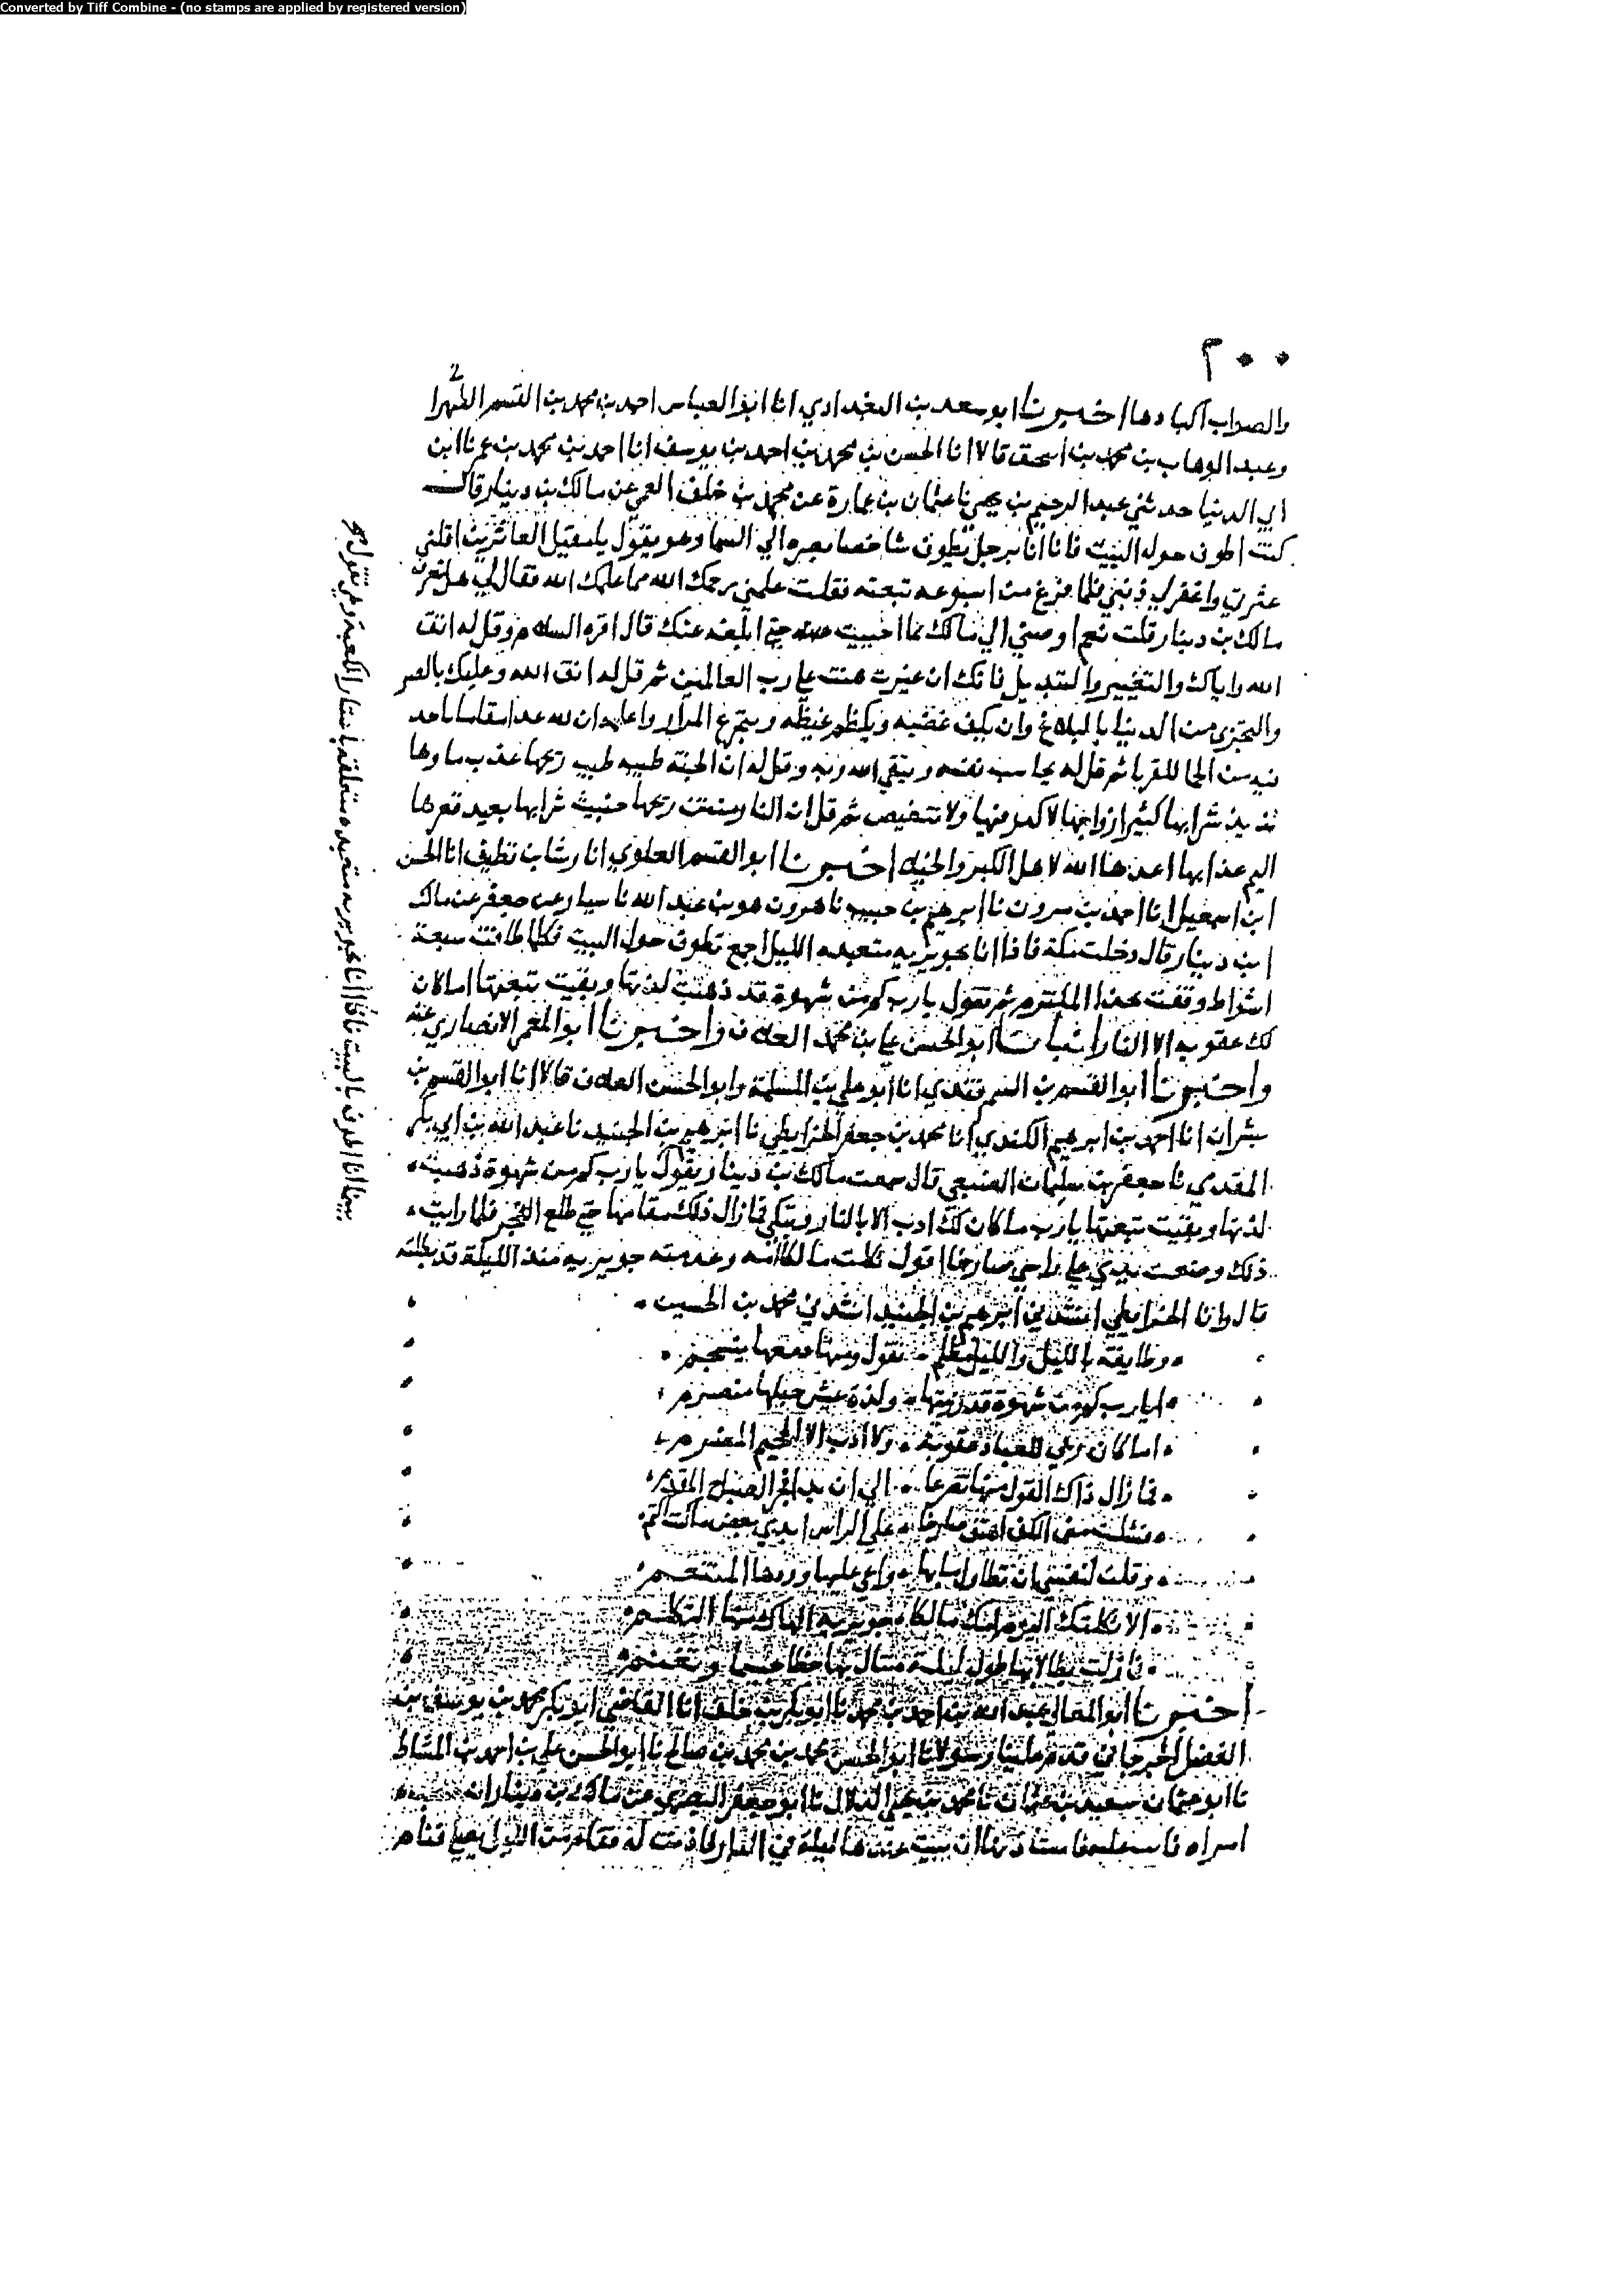 Converted by Tiff Combine - (no stamps are applied by registered version)
٢٠٠
والصواب اكبادها اخبرنا ابو سعد بن البغدادي انا ابو العباس احمد بن محمد بن القسم الطهرا
وعبد الوهاب بن محمد بن اسحق قالا انا الحسن بن محمد بن احمد بن يوسف انا احمد بن محمد بن عمر نا ابن
ابي الدنيا حدثني عبد الرحيم بن يحيى نا عثمان بن عمارة عن محمد بن خلف العمي عن مالك بن دينار قال
كنت اطوف حول البيت فاذا انا برجل يطوف شاخصا بصره الي السما وهو يقول يا مقيل العاثرين اقلني
عثرتي واغفر لي ذنبي فلما فرغ من اسبوعه تبعته فقلت علمني رحمك الله مما علمك الله فقال لي هل تعرف
مالك بن دينار قلت نعم اوصني الي مالك بما احببت حتى ابلغه عنك قال اقره السلام وقل له اتق
الله واياك والتغيير والتبديل فانك ان غيرت هنت علي رب العالمين ثم قل له اتق الله وعليك بالصبر
والتجزي من الدنيا بالبلاغ وان يكف غضبه ويكظم غيظه ويتجرع المرار واعلم ان لله غدا
ثم قل له يحاسب نفسه ويتقي الله ربه وقل له ان الجنة طيبه طيب ريحها عذب ماوها
شرابها كثير ازواجها لا كدر فيها ولا تنغيص ثم قل ان النار منتن ريحها خبيث شرابها بعيد قعرها
اليم عذابها اعدها الله لاهل الكبر والخيلا اخبرنا ابو القسم العلوي انا رشا بن نظيف انا الحسن
ابن اسمعيل انا احمد بن مروان نا ابرهيم بن حبيب نا هرون هو بن عبد الله نا سيار عن جعفر عن مالك
ابن دينار قال دخلت مكة فاذا انا بجويريه متعبده الليل اجمع تطوف حول البيت فكلما طافت سبعة
اشواط وقفت بحذا الملتزم ثم تقول يا رب كم من شهوة قد ذهبت لذتها وبقيت تبعتها اما كان
لك عقوبه الا النار انبانا ابو الحسن علي بن محمد العلاف واخبرنا ابو المعمر الانصاري عنه
واخبرنا ابو القسم بن السمرقندي انا ابو علي بن المسلمة وابو الحسن العلاف قالا انا ابو القسم بن
بشران انا احمد بن ابرهيم الكندي انا محمد بن جعفر الخرايطي نا ابرهيم بن الجنيد نا عبد الله بن ابي بكر
المقدمي نا جعفر بن سليمان الضبعي قال سمعت مالك بن دينار يقول يا رب كم من شهوة ذهبت
لذتها وبقيت تبعتها يا رب ما كان لك ادب الا بالنار وتبكي فما زال ذلك مقامها حتى طلع الفجر فلما رايت
ذلك وضعت يدي علي راسي صارخا اقول ثكلت مالكا امه وعدمته جويريه منذ الليلة قد بطلته
قال وانا الخرايطي انشدني ابرهيم بن الجنيد انشدني محمد بن الحسين
وطايفة بالليل والليل مظلم تقول ومنها دمعها يتسجم
ايا رب كم من شهوة قد رزيتها ولذة عيش حبلها متصرم
اما كان ربي للعباد عقوبة ولا ادب الا الجحيم المضرم
فما زال ذاك القول منها تضرعا الي ان بدا فجر الصباح المقدم
الكف اهتف صارخا علي الراس ابدي بعض ما كنت اكتم
وقلت لنفسي ان تطاول ما بها واعي عليها وردها المتغنم
الا ثكلتك اليوم امك مالكا جويريه الهاك منها التكلم
فما زلت بطالا بها طول ليلة تنال بها حظا جسيما وتغنم
اخبرنا ابو المعالي عبد الله بن احمد بن محمد نا ابو بكر بن خلف انا القاضي ابو بكر محمد بن يوسف بن
الفضل الجرجاني قدم علينا رسولا نا ابو الحسن محمد بن محمد بن صالح نا ابو الحسن علي بن احمد بن المشاط
نا ابو عثمان سعيد بن عثمان نا محمد بن يحيى نا ابو جعفر البصري عن مالك بن دينار انه
امراه ان يبيت عندها ليلة في الدار فاذنت له فقام من الليل يصلي
بينما انا اطوف بالبيت فاذا انا بجويريه متعبده متعلقه باستار الكعبة وهي تقول